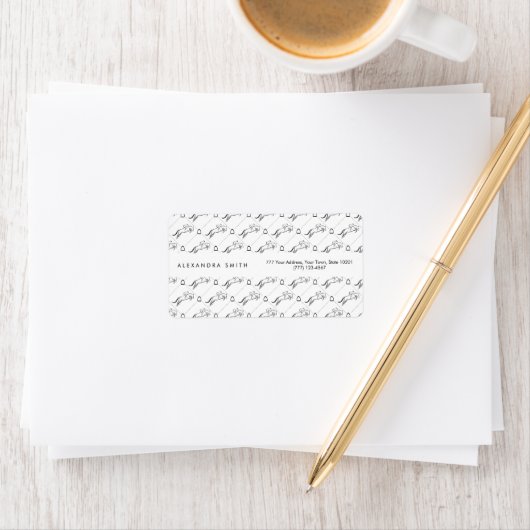 ALEXANDRA SMITH
777 Your Address, Your Town, State 10221
(777) 123-4567